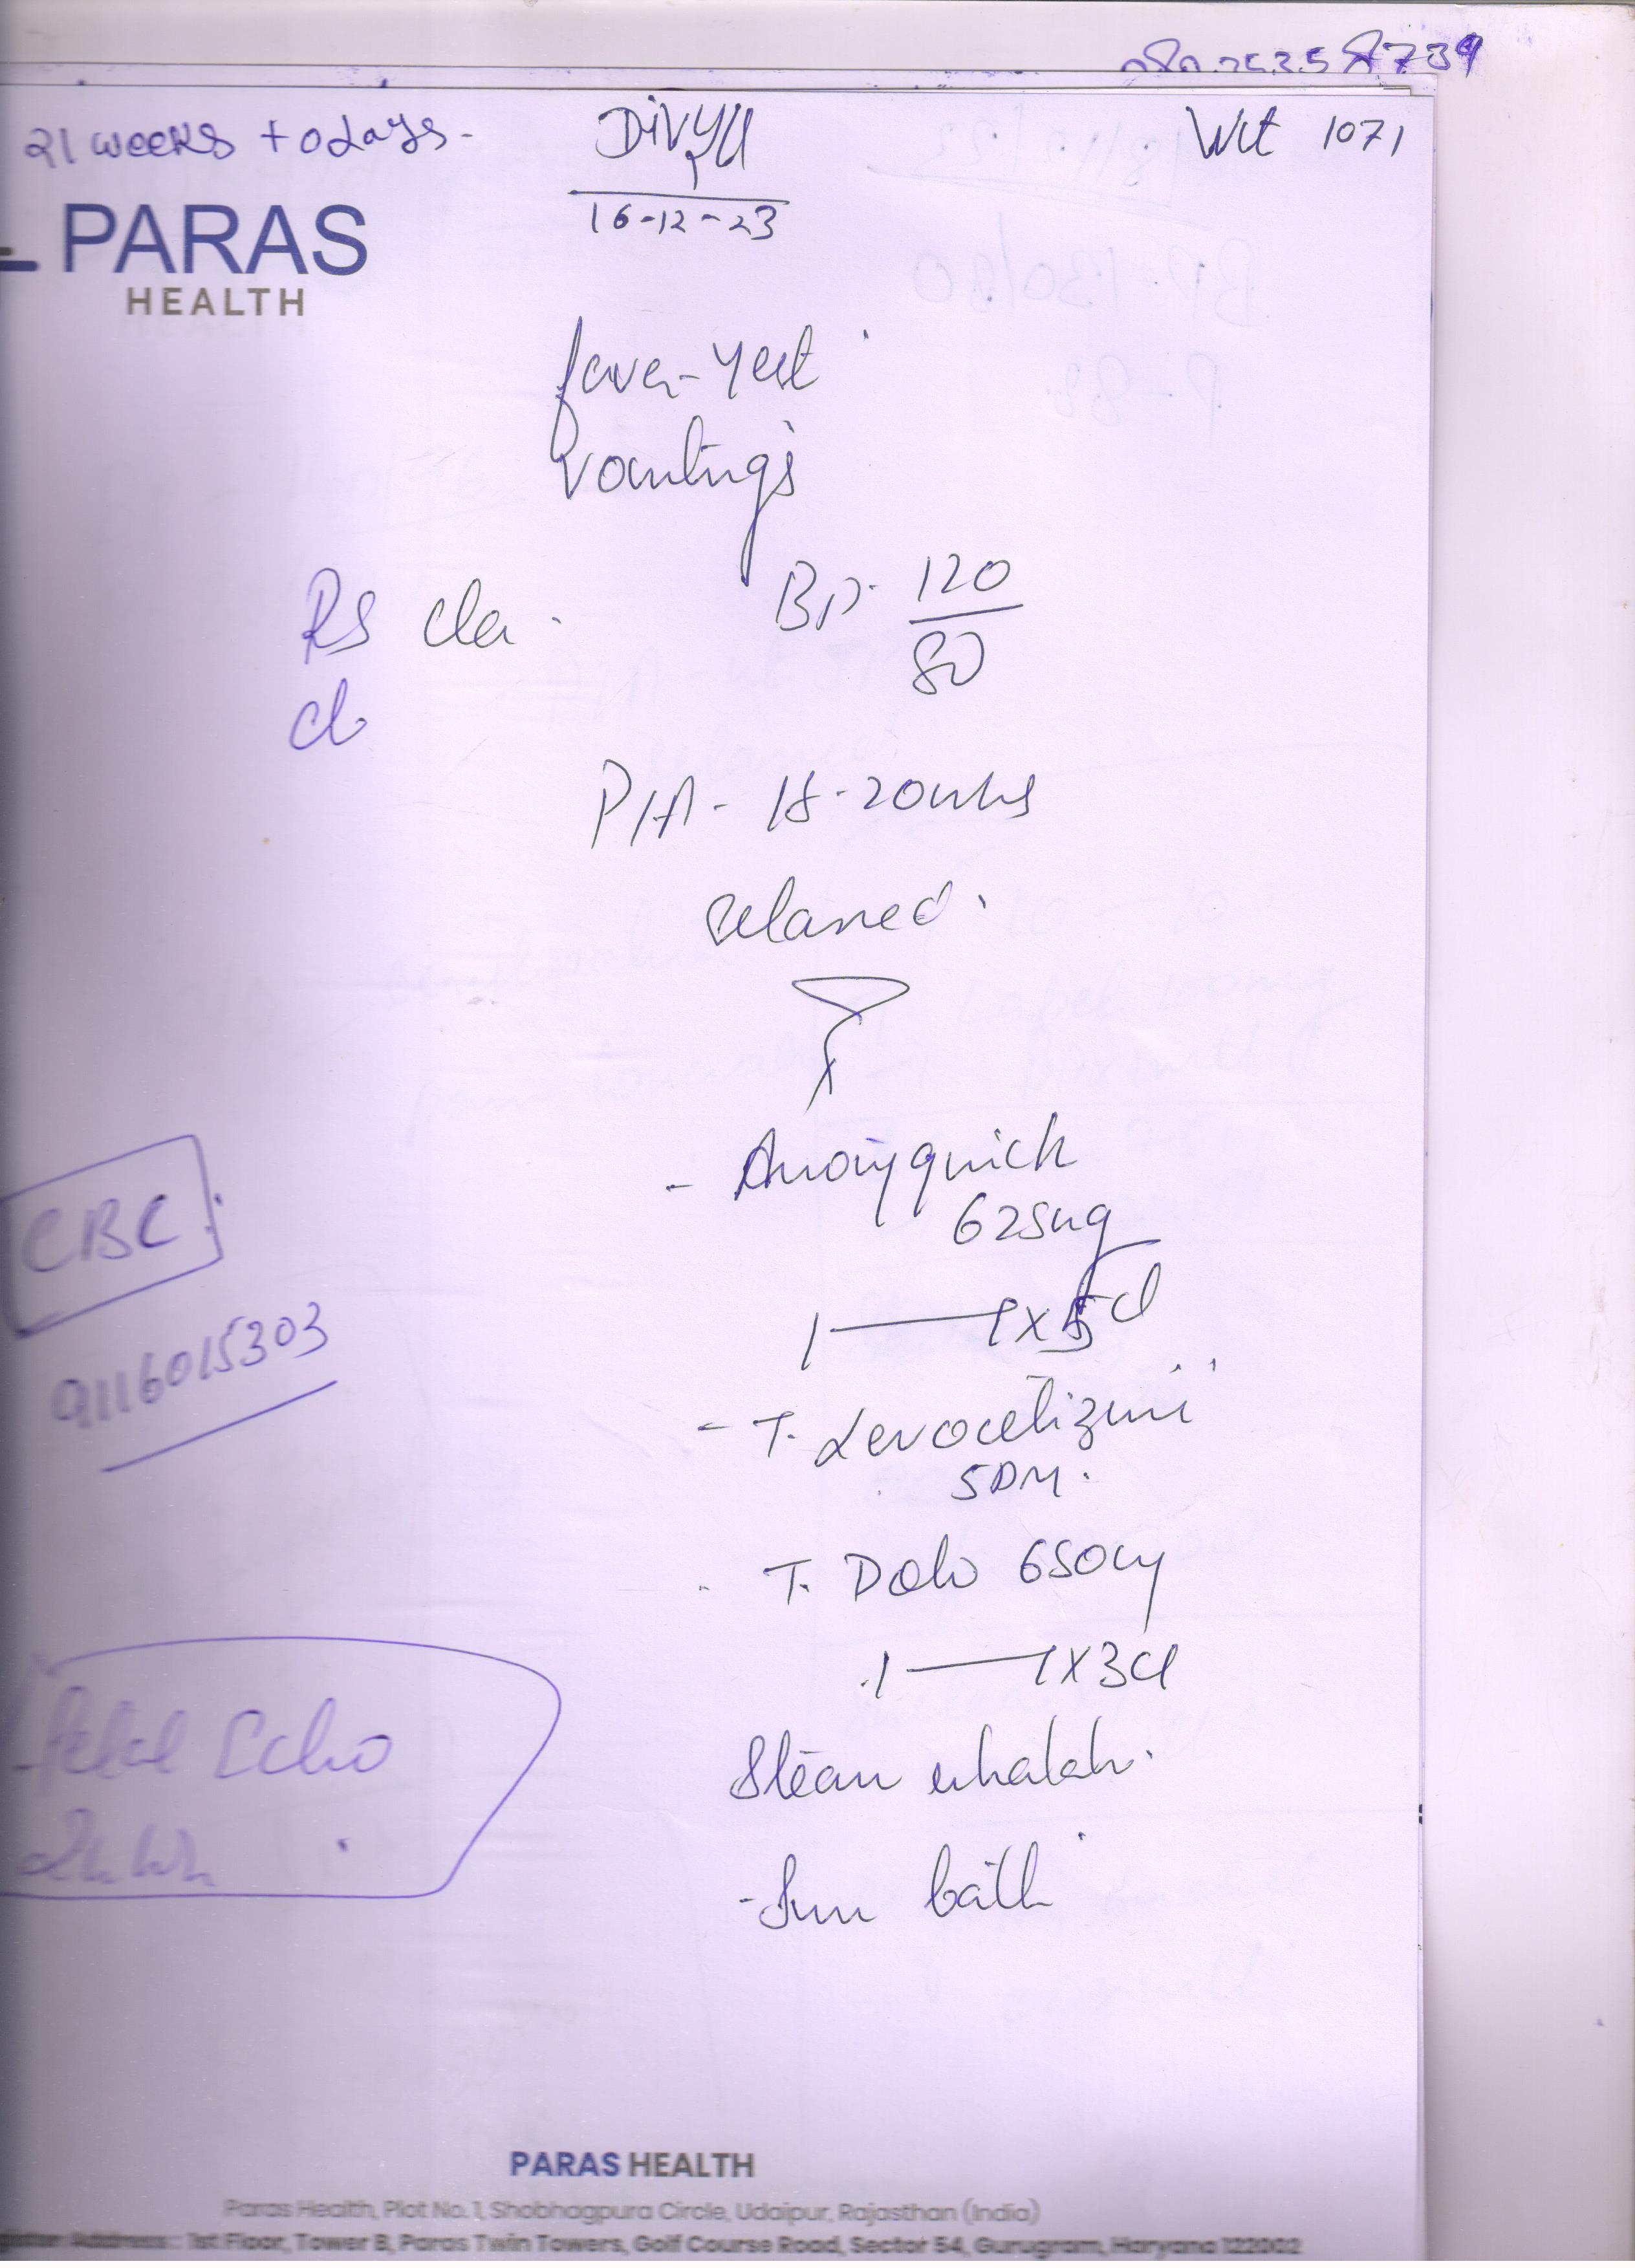 21 weeks + 0 days - DIVYA Wt 1071
16-12-23
PARAS
HEALTH
fever - yest
vomitings
RS clea BP. 120
80
P/A - 18-20wks
relaxed.
- Amoxyquick
625mg
CBC
1 — 1 x 5d
9116015303
- T. Levocetizine
5DM.
- T. Dolo 650mg
1 — 1 x 3d
Fetal Echo
Steam inhalatn.
- Sun bath
PARAS HEALTH
Paras Health, Plot No. 1, Shobhagpura Circle, Udaipur, Rajasthan (India)
Address : 1st Floor, Tower B, Paras Twin Towers, Golf Course Road, Sector 54, Gurugram, Haryana 122002